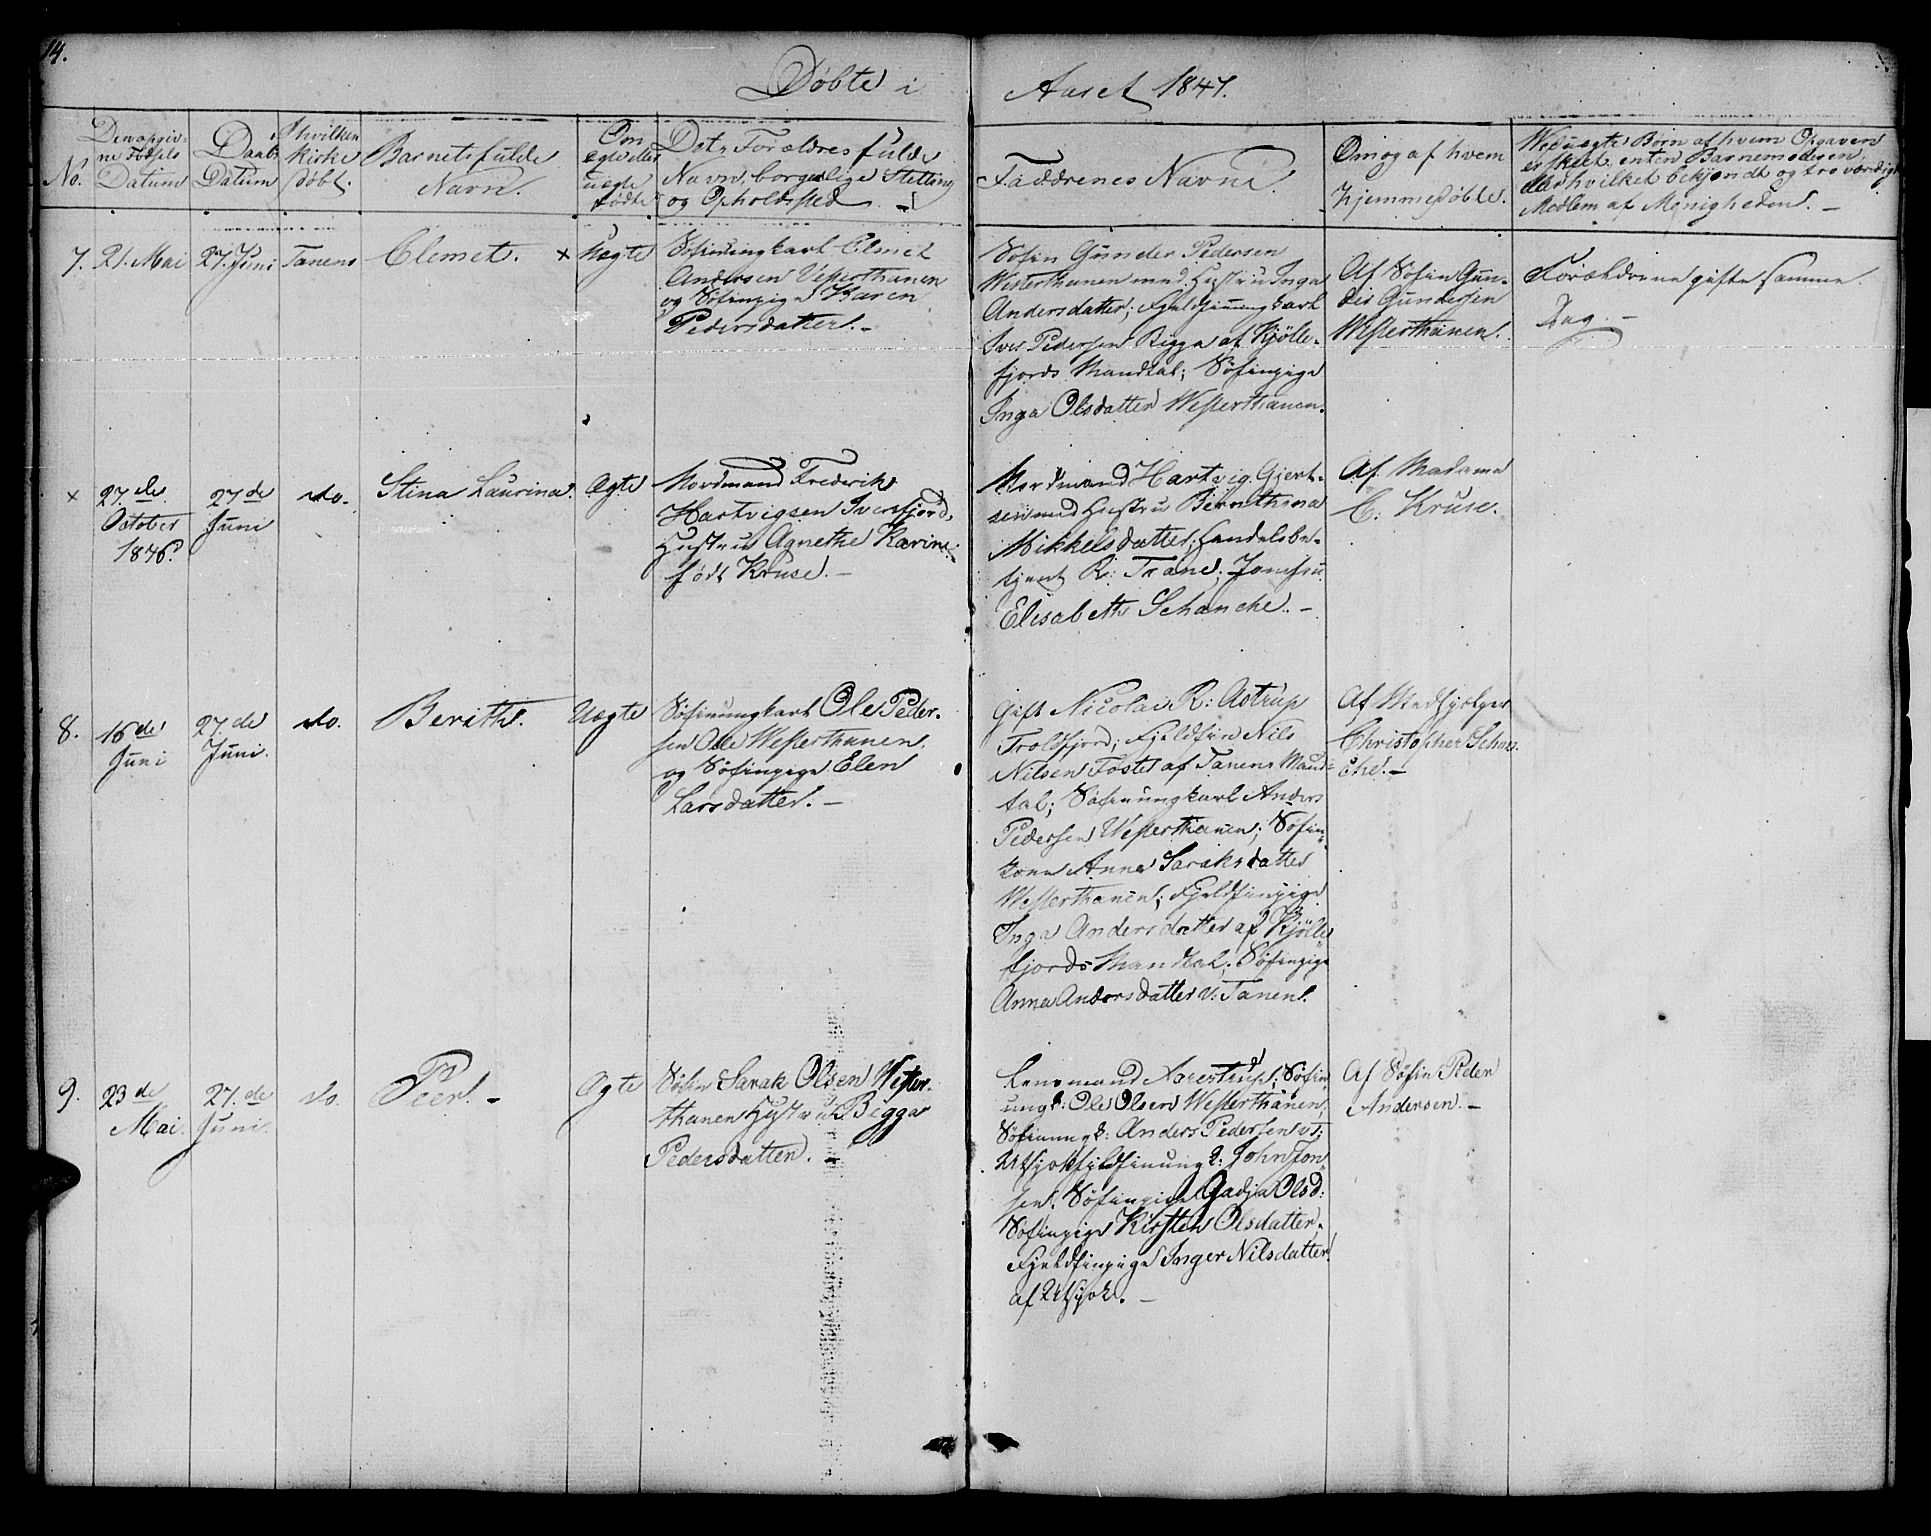 14.
Døbte i Aaret 1847.
No.
Den opgiv-
ne Fødsels
Datum
Daabs
Datum
I hvilken
Kirke
døbt.
Barnets fulde
Navn.
Om
ægte eller
uægte
fødte
Dets Forældres fulde
Navn, borgerlige Stilling
og Opholdssted.
Faddrenes Navne.
Om og af hvem
hjemmedøbte.
Ved uægte Børn af hvem Opgaven
er skeet, enten Barnemoderen
eller hvilket bekjendt og troværdigt
Medlem af Menigheden. -
7.
21. Mai
27. Juni
Tanens
Clemet. ×
Uægte
Søfinungkarl Clemet
Andersen Vesterthanen
og Søfinpige Karen
Pedersdatter. -
Søfin Gunder Pedersen
Westerthanen med Hustru Inga
Andersdatter; Fjeldfinungkarl
Iver Pedersen Bigga af Kjølle-
fjords Mandtal; Søfinpige
Inga Olsdatter Westerthanen.
Af Søfin Gun-
der Gundersen
Westerthanen.
Forældrene gifte samme
Dag. -
×
27de
October
1846.
27de
Juni
do.
Stina Laurina.
Ægte
Nordmand Frederik
Hartvigsen Iversfjord,
Hustru Agnethe Karine
født Kruse. -
Nordmand Hartvig Gjert-
sen med Hustru Bernthina
Mikkelsdatter; Handelsbe-
tjent R: Trane; Jomfru
Elisabeth Schanche. -
Af Madame
C. Kruse.
8.
16de
Juni
27.de
Juni.
do.
Berith.
Uægte
Søfinungkarl Ole Peder-
sen Olle Westerthanen
og Søfinpige Elen
Larsdatter. -
Gift Nicolai R: Astrup
Troldfjord; Fjeldfin Nils
Nilsen Foster af Tanens Mand-
tal; Søfinungkarl Anders
Pedersen Westerthanen; Søfin-
kone Anna Saraksdatter
Westerthanen; Fjeldfinpige
Inga Andersdatter af Kjølle
fjords Mandtal; Søfinpige
Anna Andersdatter V: Tanen.
Af Medhjelper
Christopher Schan-
che. -
9.
23de
Mai.
27.de
Juni.
do.
Peer. -
Ægte
Søfin Sarak Olsen Wester-
thanen Hustru Bigga
Pedersdatter. -
Lensmand Aarestrup; Søfin
ungk: Ole Olsen Westerthanen,
Søfinungk: Anders Pedersen
Utsjokfjeldfinungk: John Jon
sen. Søfinpige Gadja Olsd:
Søfinpige Kirsten Olsdatter,
Fjeldfinpige Inger Nilsdatter
af Utsjok. -
Af Søfin Peder
Andersen. -